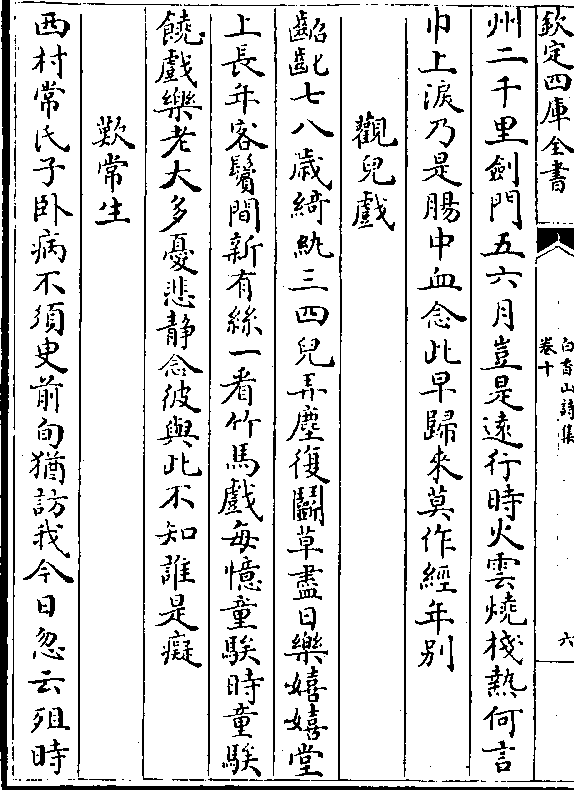 欽定四庫全書
白香山詩集
卷十
六
州二千里劍門五六月豈是遠行時火雲燒棧熱何言
巾上淚乃是腸中血念此早歸來莫作經年别
觀兒戲
齠齔七八歲綺紈三四兒弄塵復鬭草盡日樂嬉嬉堂
上長年客鬢間新有絲一看竹馬戲每憶童騃時童騃
饒戲樂老大多憂悲静念彼與此不知誰是癡
歎常生
西村常氏子卧病不須史前旬猶訪我今日忽云殂時